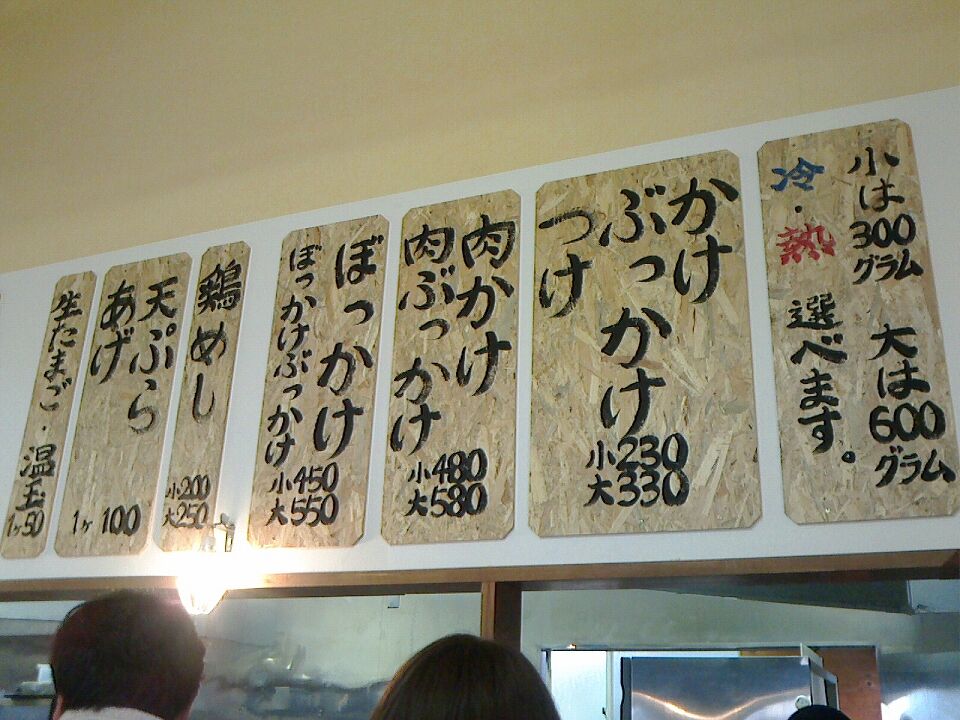 小は300グラム 大は600グラム
冷・熱 選べます。
かけ
ぶっかけ
つけ
小230
大330
肉かけ
肉ぶっかけ
小480
大580
ぼっかけ
ぼっかけぶっかけ
小450
大550
鶏めし
小200
大250
天ぷら
あげ
1ヶ100
生たまご・温玉
1ヶ50